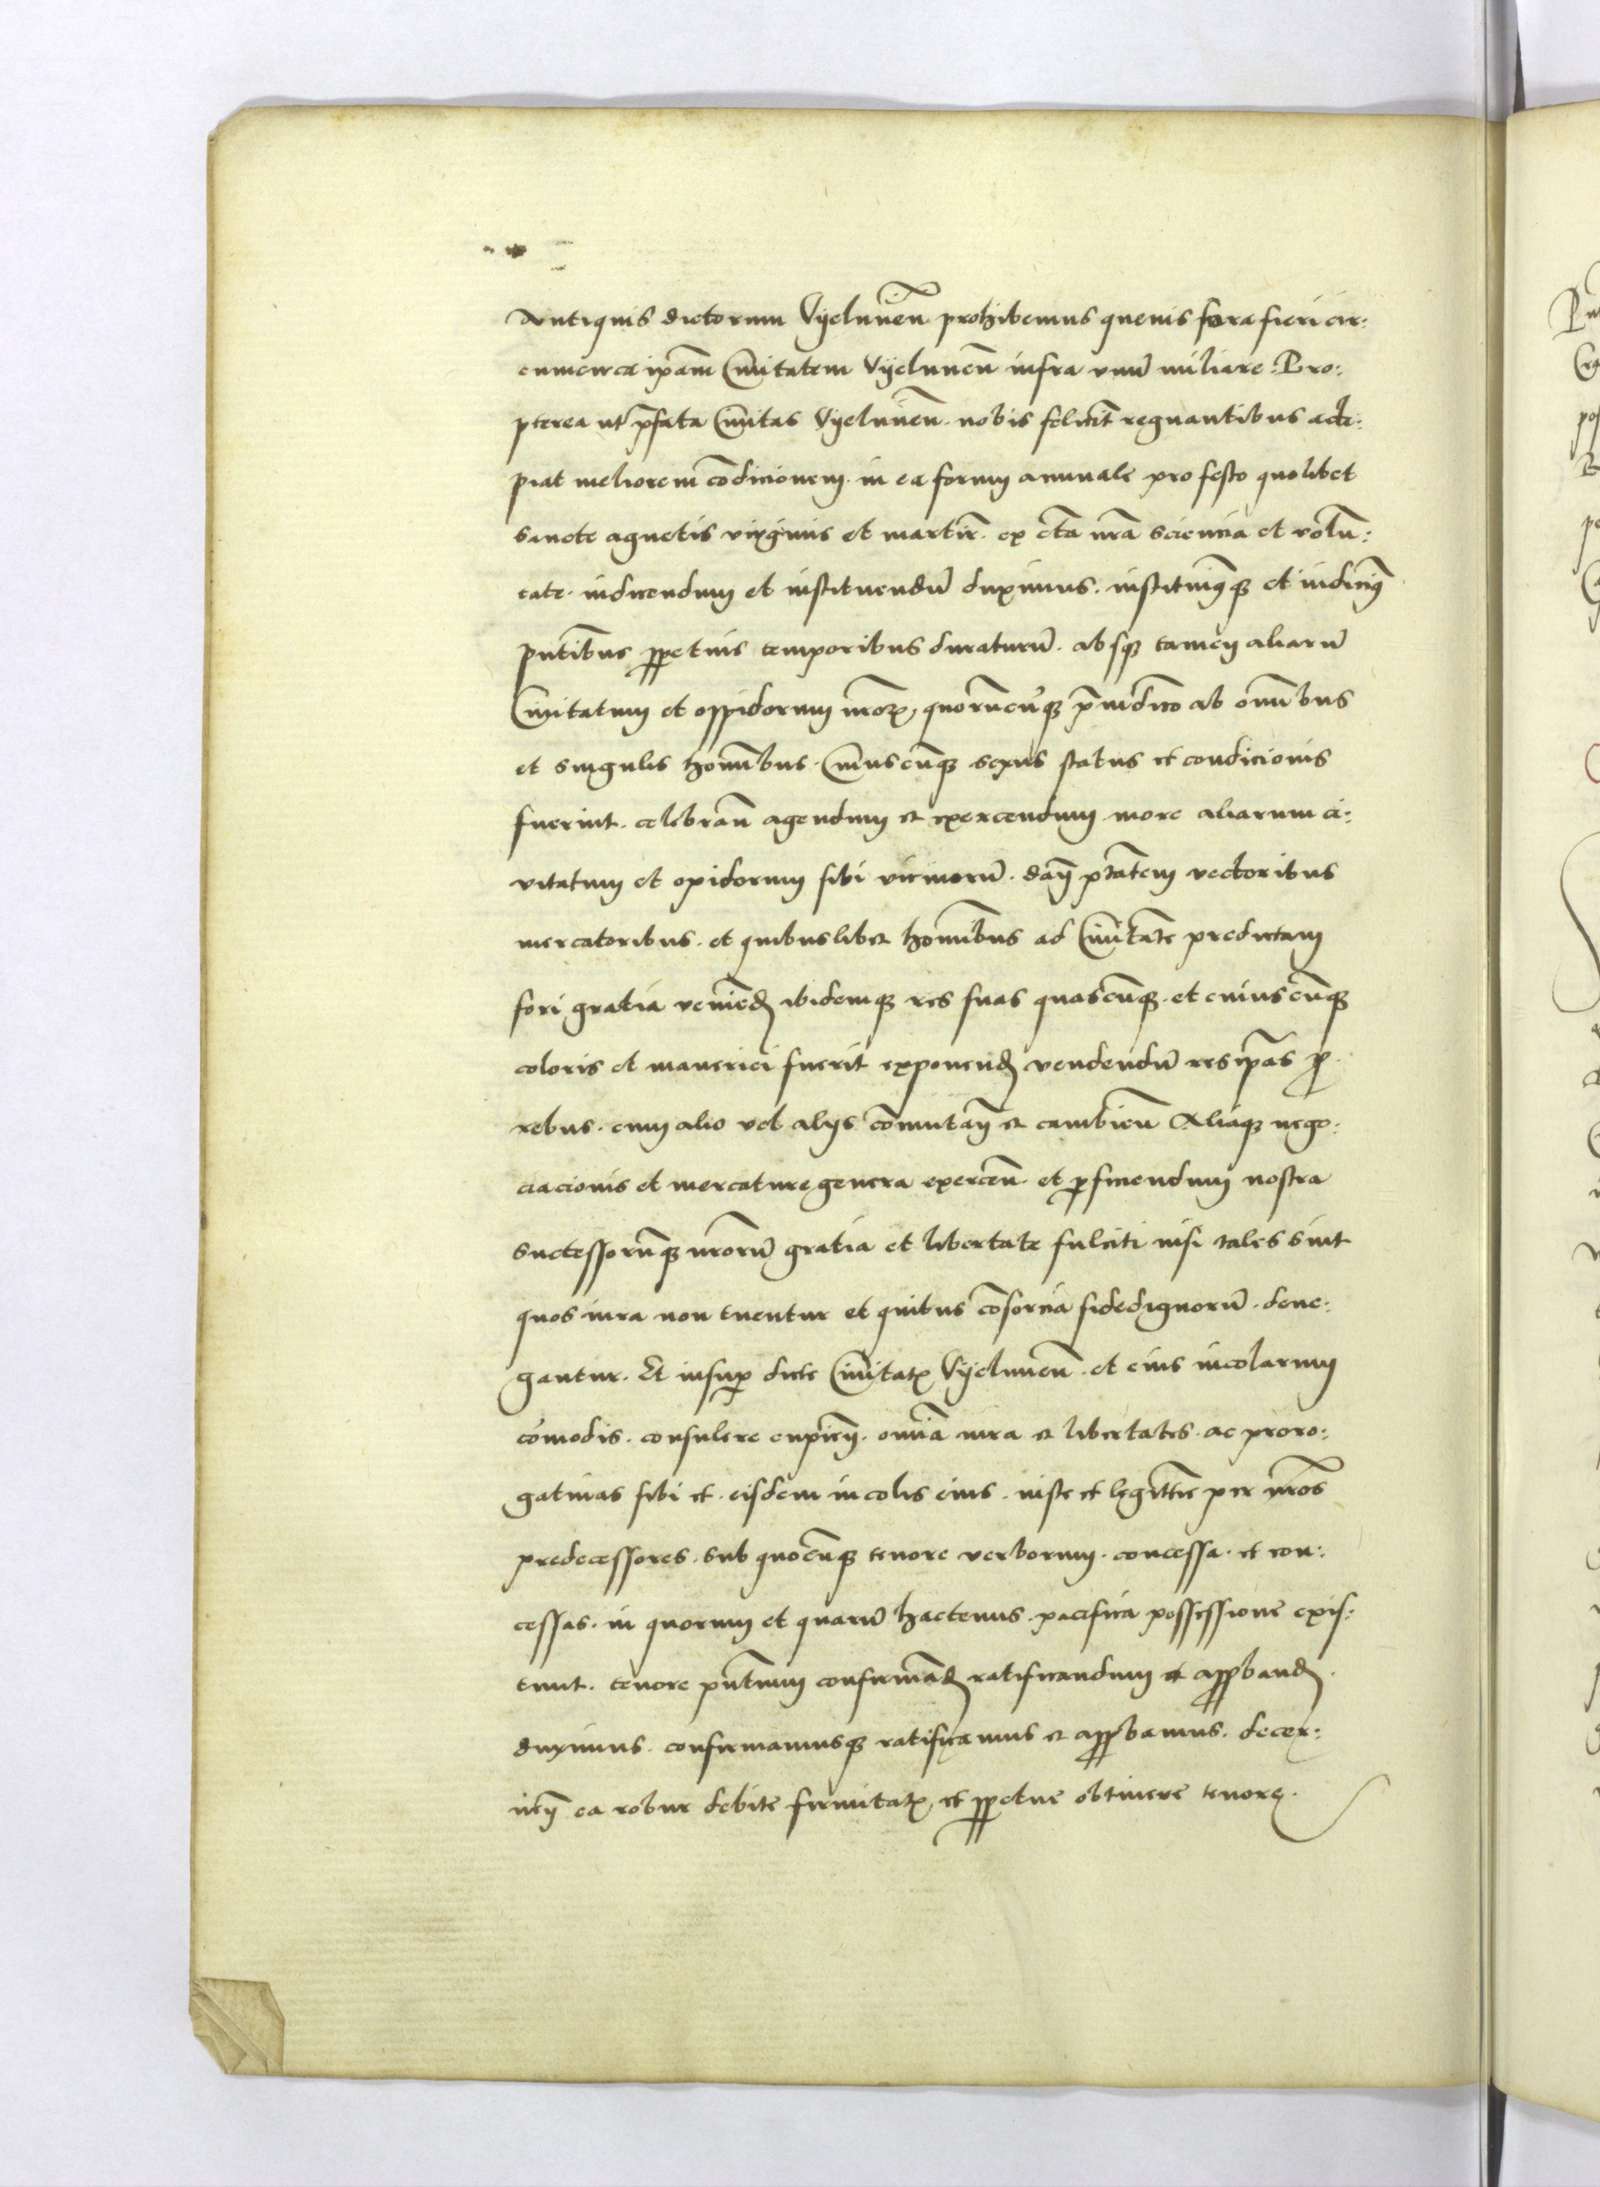 Antiquis dictorum Vyelunen̄ prohibemus quenis fora fieri cir:
cumcirca ip̄am Ciuitatem Vyelunen̄ infra vnū miliare. Pro:
pterea ut p̄fata Ciuitas Vyelunen̄. nobis felicit̄ regnantibus acti:
piat meliorem cōdicionem. in ea forum annuale pro festo quolibet
sancte agnetis virginis et martir̄. ex c̄ta nr̄a sciencia et volū:
tate. indicendum et instituendū duximus. instituimꝰqꝫ et indicimꝰ
pn̄tibus ꝑpetuis temporibus duraturū. absqꝫ tamen aliarū
Ciuitatum et oppidorum nr̄oꝝ, quorūcūqꝫ p̄iudicio ab om̄ibus
et singulis homībus. Cuiuscūqꝫ sexus status et condicionis
fuerint. celebran̄ agendum et exercendum more aliarum ci:
vitatum et opidorum sibi vicinorū. dan̄ p̄tatem vectoribus
mercatoribus. et quibuslibet homībus ad Ciuitate predictam
fori gratia veniend̄ ibidemqꝫ res suas quascūqꝫ. et cuiuscūqꝫ
coloris et maneriei fuerit exponend̄ vendendū res ip̄as ꝓ
rebus. cum alio vel alijs cōmutan̄ et cambien̄ Aliaqꝫ nego:
ciacionis et mercature genera exercen̄. et ꝑficiendum nostra
successorūqꝫ nr̄orū gratia et libertate fulciti nisi tales sint
quos iura non tuentur et quibus cōsorcia fidedignorū. dene:
gantur. Et insuꝑ dicte Ciuitatꝭ Vyelunen̄. et eius incolarum
cōmodis. consulere cupien̄. om̄ia iura et libertates. ac proro:
gatiuas sibi et. eisdem incolis eius. iuste et legittīe per nr̄os
predecessores. sub quocūqꝫ tenore verborum. concessa. et con:
cessas. in quorum et quarū hactenus. pacifica possessione exis:
tunt. tenore pn̄tium confirmād̄ ratificandum et apꝓband̄.
duximus. confirmamusqꝫ ratificamus et apꝓbamus. decer:
nen̄ ea robur debite firmitatꝭ, et ꝑpetue obtinere tenore.